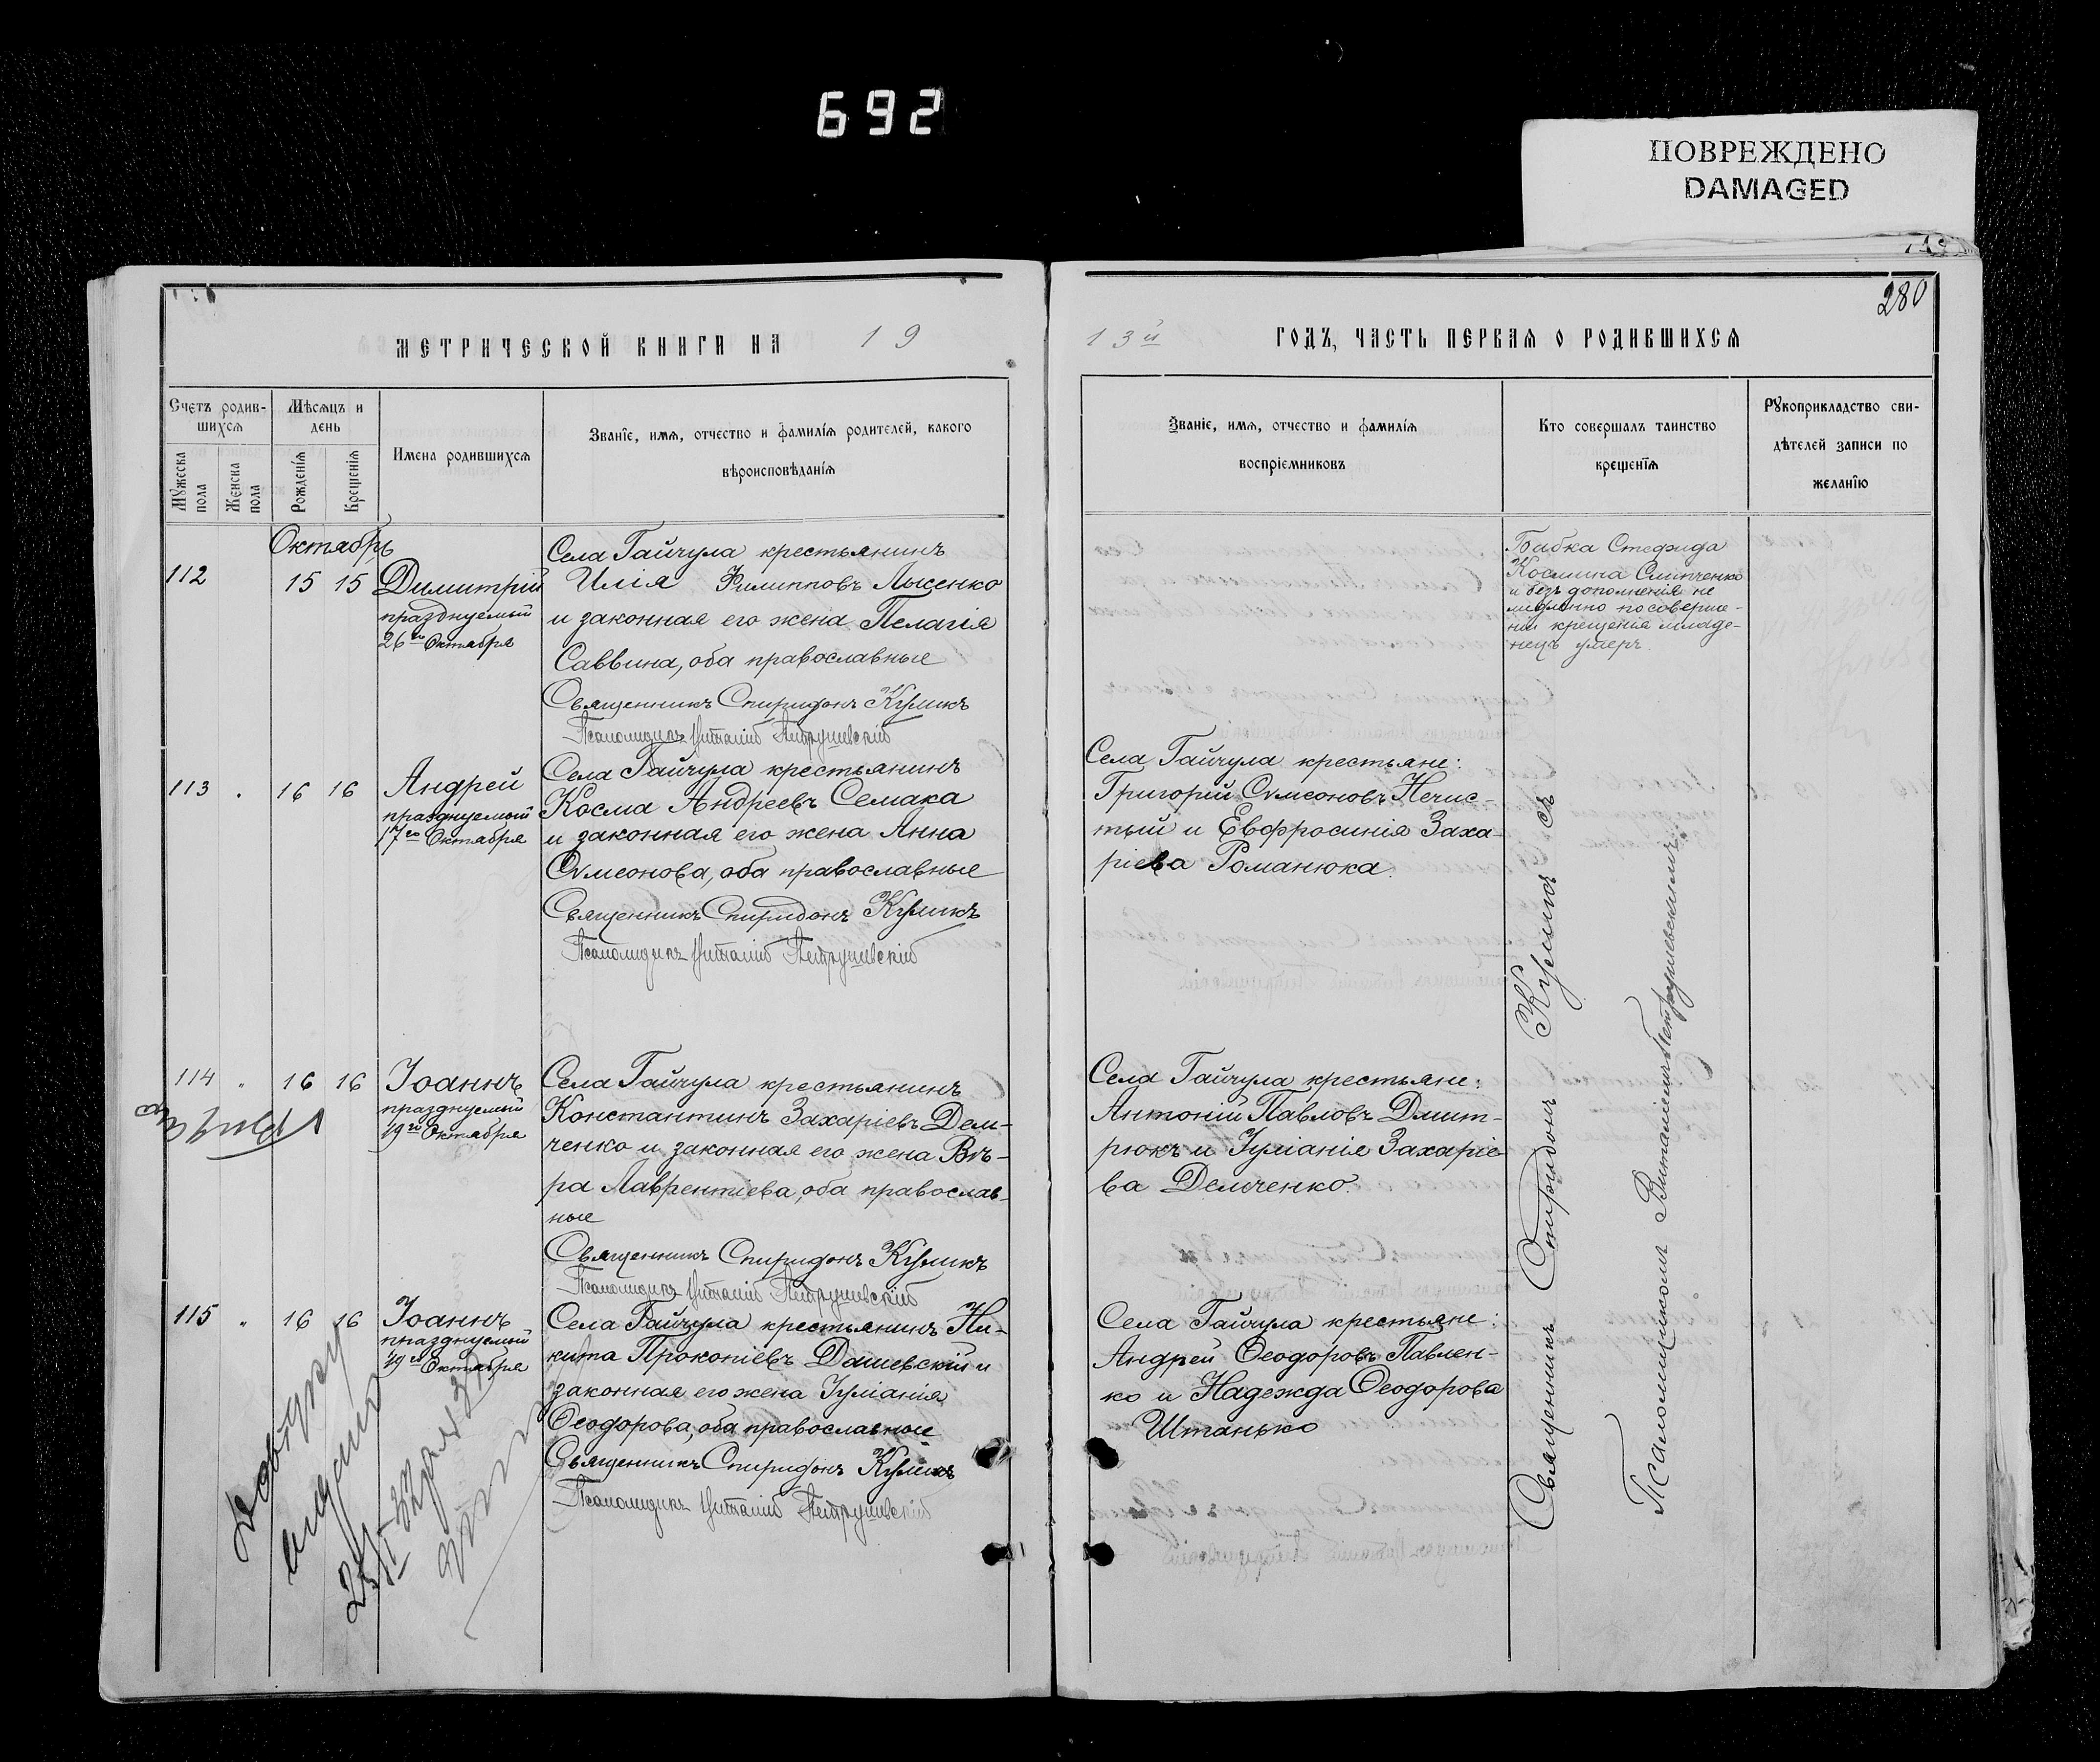 692
ПОВРЕЖДЕНО
DAMAGED
280
МЕТРИЧЕСКОЙ КНИГИ НА 19
13й ГОДЪ, ЧАСТЬ ПЕРВАЯ О РОДИВШИХСЯ
Счетъ родив-
шихся
Мужеска пола
Женска пола
Мѣсяцъ и
день
Рожденія
Крещенія
Имена родившихся
Званіе, имя, отчество и фамилія родителей, какого
вѣроисповѣданія
Званіе, имя, отчество и фамилія
воспріемниковъ
Кто совершалъ таинство
крещенія
Рукоприкладство сви-
дѣтелей записи по
желанію
Октябрь
112 15 15
Димитрій
празднуемый
26го Октября
Села Гайчула крестьянинъ
Илія Филипповъ Лысенко
и законная его жена Пелагія
Саввина, оба православные
Священникъ Спиридонъ Куликъ
Псаломщикъ Виталій Петрушевскій
Бабка Стефида
Космина Слипченко
и безъ дополненія не
медленно по соверше-
ніи крещенія младе-
нецъ умеръ
113 16 16
Андрей
празднуемый
17го Октября
Села Гайчула крестьянинъ
Косма Андреевъ Семака
и законная его жена Анна
Сѵмеонова, оба православные
Священникъ Спиридонъ Куликъ
Псаломщикъ Виталій Петрушевскій
Села Гайчула крестьяне:
Григорій Сѵмеоновъ Нечис-
тый и Евфросинія Заха-
ріева Романюка.
114 " 16 16
Іоаннъ
празднуемый
19го Октября
Села Гайчула крестьянинъ
Константинъ Захаріевъ Дем-
ченко и законная его жена Вѣ-
ра Лаврентіева, оба православ-
ные
Священникъ Спиридонъ Куликъ
Псаломщикъ Виталій Петрушевскій
Села Гайчула крестьяне:
Антоній Павловъ Дмит-
рюкъ и Іуліанія Захаріе-
ва Демченко.
115 " 16 16
Іоаннъ
празднуемый
19го Октября
Села Гайчула крестьянинъ Ни-
кита Прокопіевъ Дашевскій и
законная его жена Іуліанія
Ѳеодорова, оба православные
Священникъ Спиридонъ Куликъ
Псаломщикъ Виталій Петрушевскій
Села Гайчула крестьяне:
Андрей Ѳеодоровъ Павлен-
ко и Надежда Ѳеодорова
Штанько
Священникъ Спиридонъ Куликъ съ
Псаломщикомъ Виталіемъ Петрушевскимъ